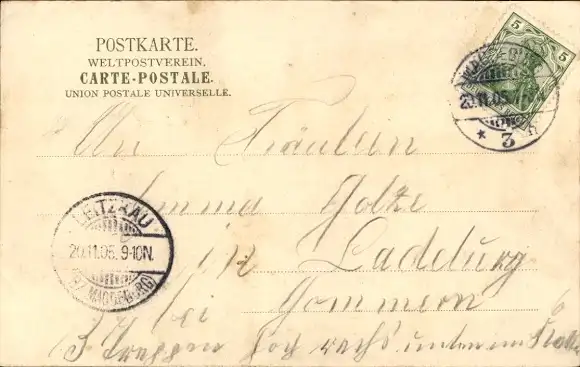 POSTKARTE.
WELTPOSTVEREIN.
CARTE-POSTALE.
UNION POSTALE UNIVERSELLE.
5 5
MAGDEBURG
20.11.05
* 3 n
An Fräulein
Emma Goltze
in Ladeburg
bei Gommern
3 Treppen hoch rechts unterm
LEITZKAU
20.11.05. 9-10N.
(BZ. MAGDEBURG)